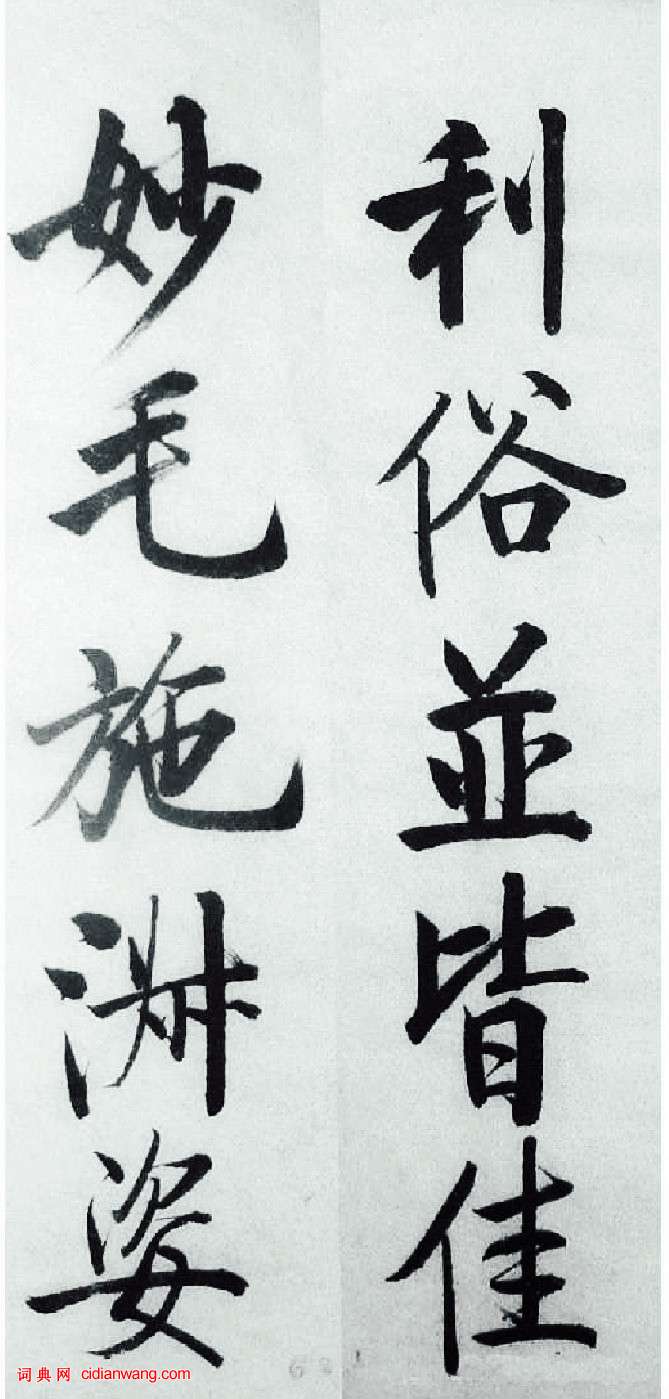 利俗並皆佳
妙毛施淑姿
词典网 cidianwang.com